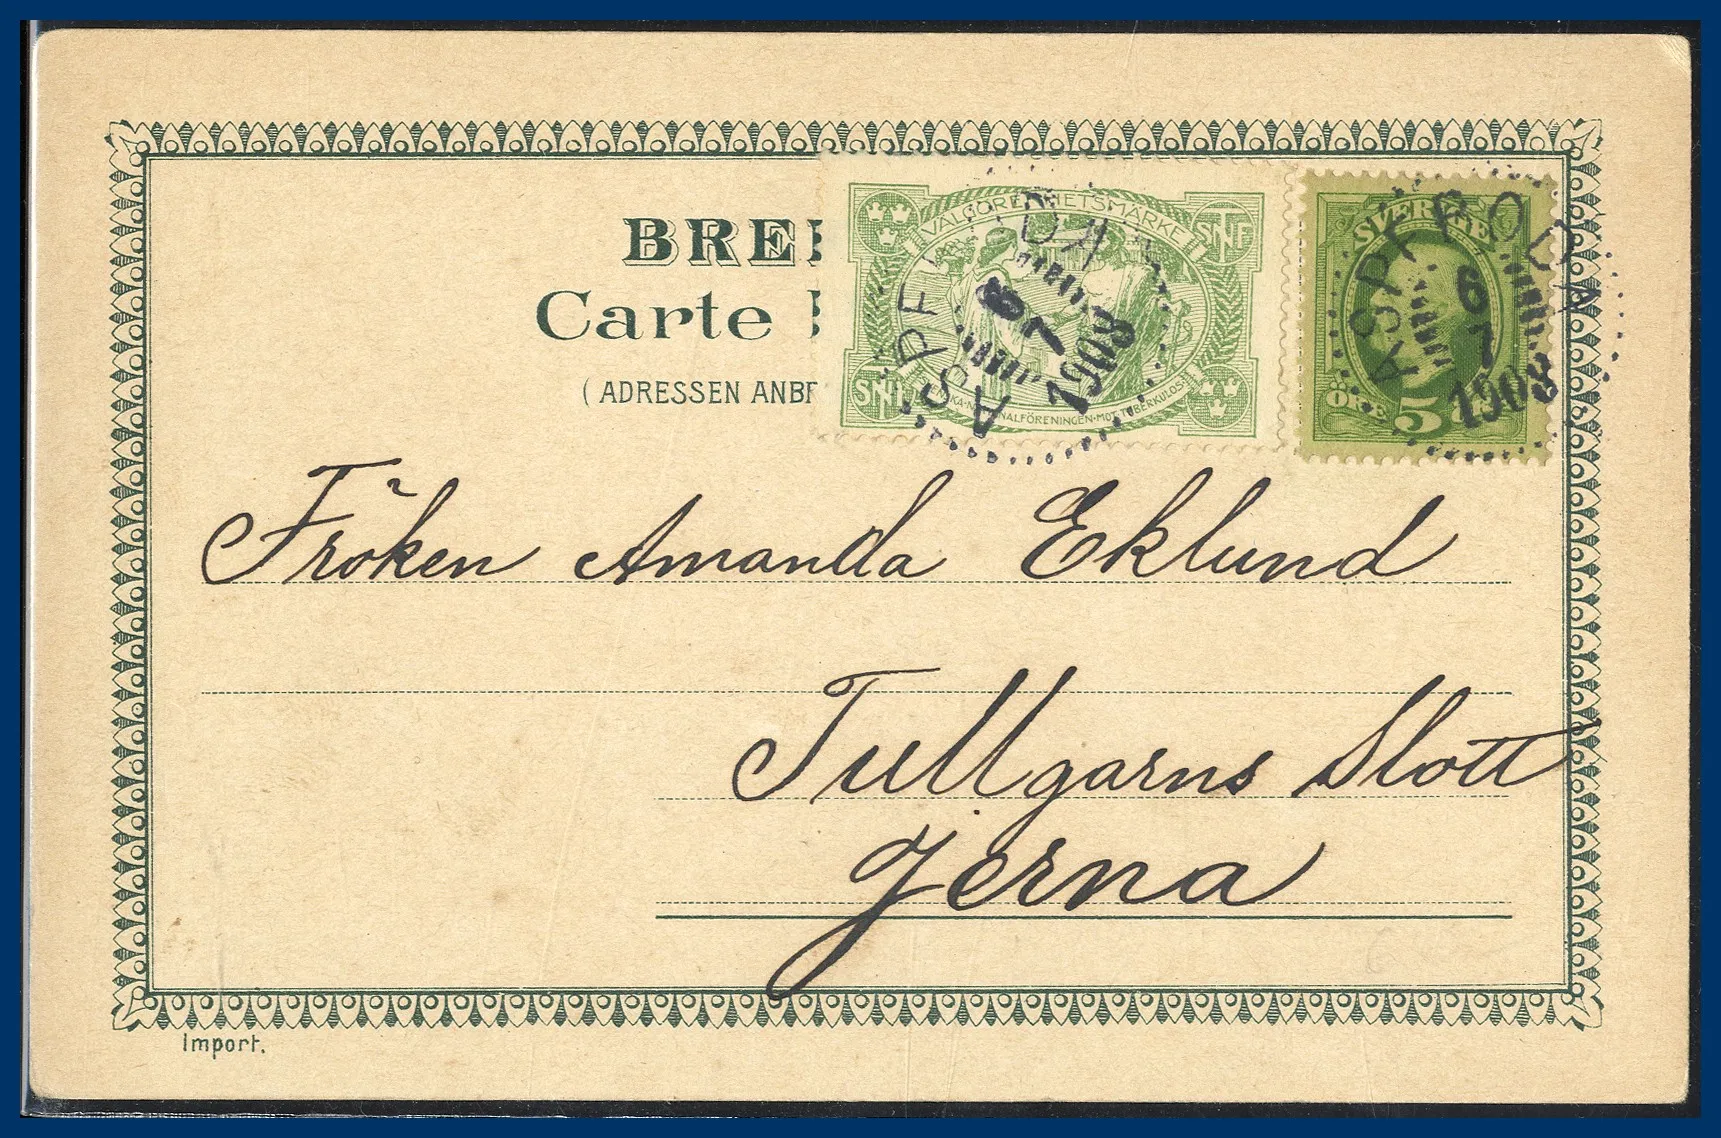 BRE
Carte
(ADRESSEN ANBR
VÄLGÖRENHETSMÄRKE
SNF
SNF
NALFÖRENINGEN·MOT·TUBERKULOS
ASPF DA
6
7
1908
SVERIGE
ÖRE 5 ÖRE
ASPFRODA
6
7
1908
Fröken Amanda Eklund
Tullgarns Slott
Jerna
Import.